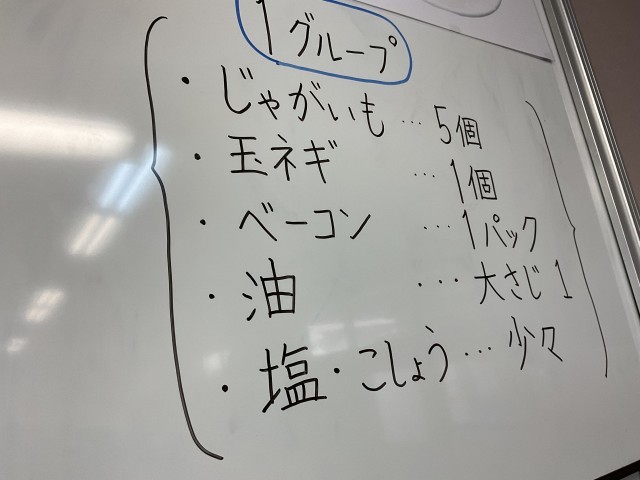 1グループ
・じゃがいも…5個
・玉ネギ…1個
・ベーコン…1パック
・油…大さじ1
・塩・こしょう…少々